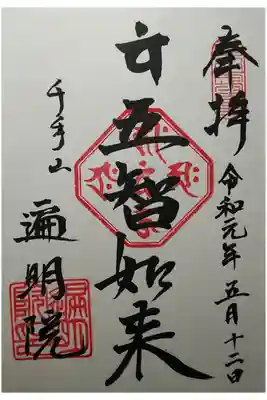 奉拝
令和元年五月十二日
五智如来
千手山
遍明院